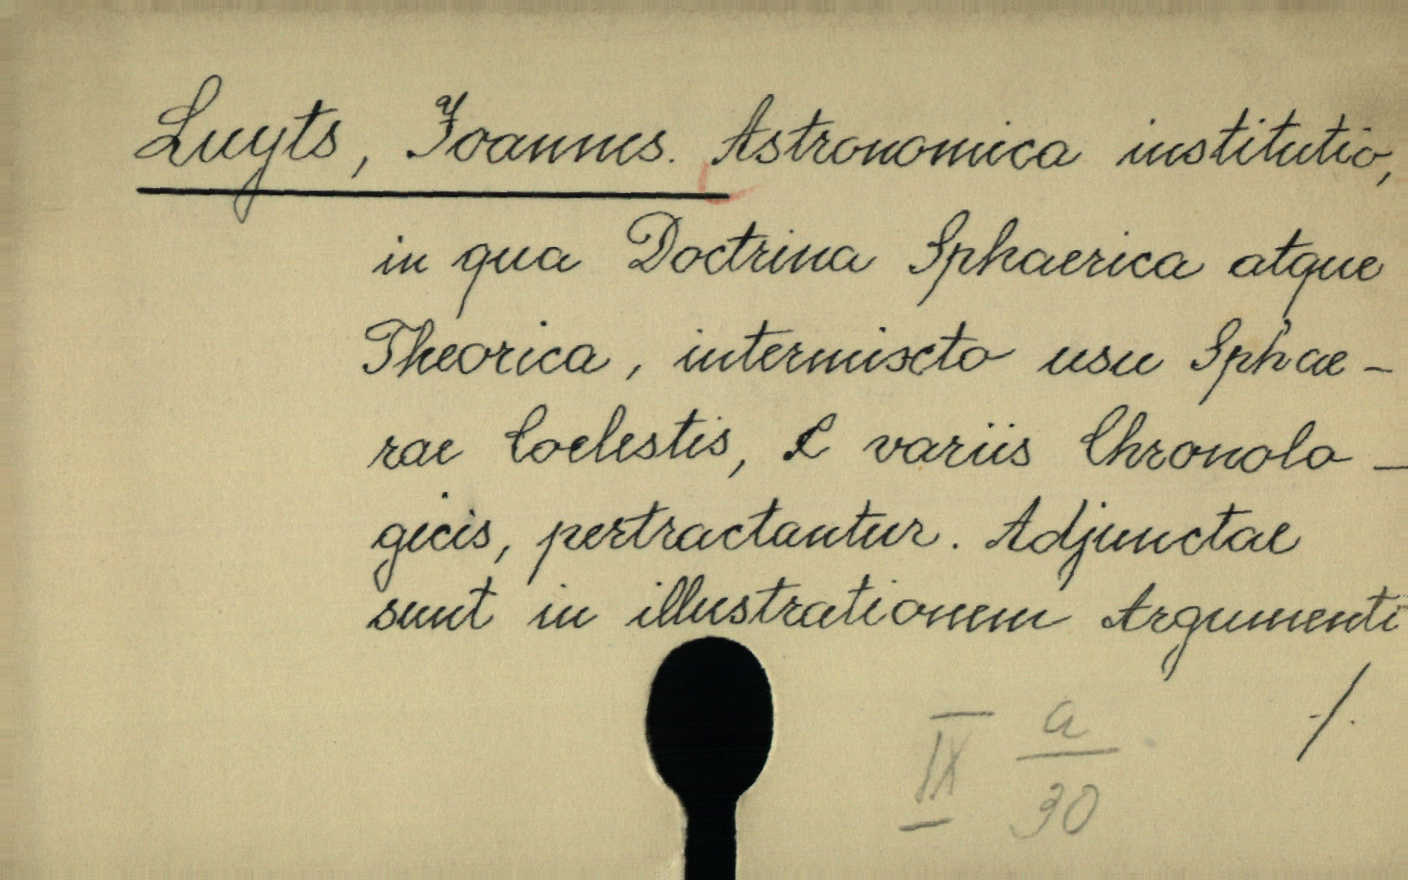 Luyts, Joannes. Astronomica institutio,
in qua Doctrina Sphaerica atque
Theorica, intermixto usu Sphae-
rae Coelestis, & variis Chronolo-
gicis, pertractantur. Adjunctae
sunt in illustrationem Argumenti
./.
IX a/30